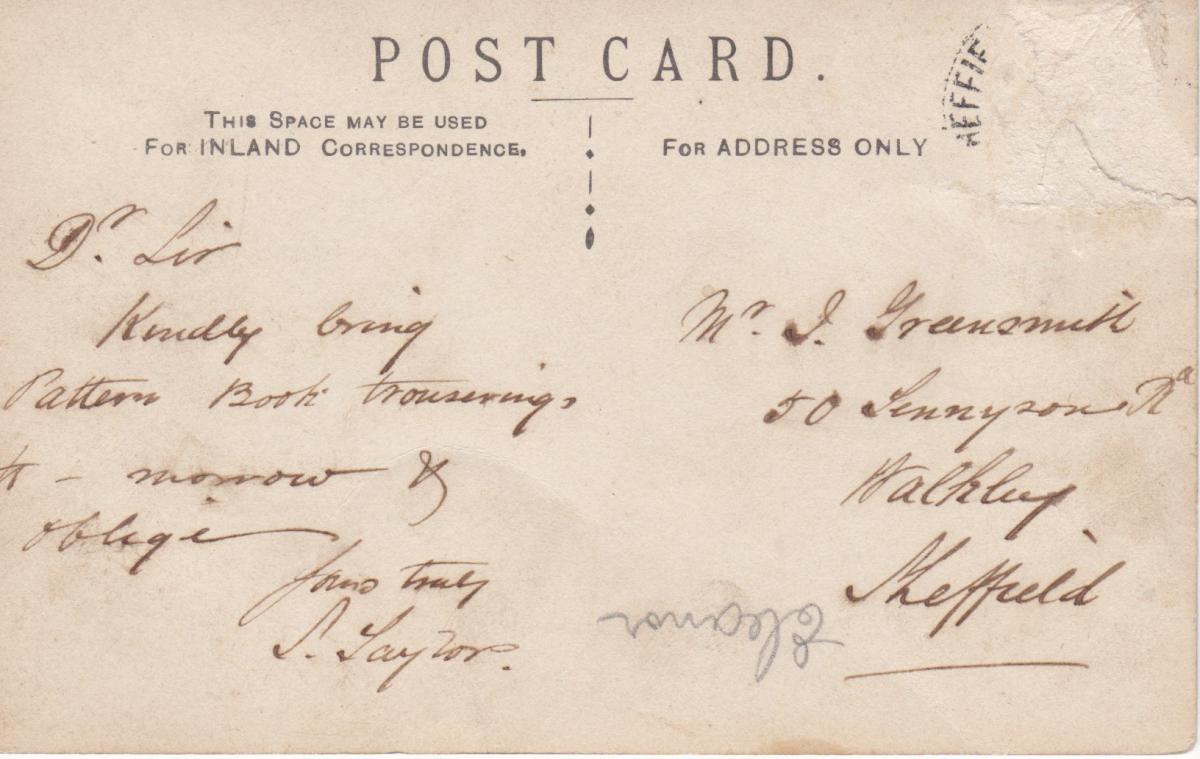 POST CARD.
THIS SPACE MAY BE USED
FOR INLAND CORRESPONDENCE.
FOR ADDRESS ONLY
EFFIE
Dr. Sir
Kindly bring
Pattern Book trouserings
to-morrow &
oblige
Yours truly
S. Taylor.
Mr. J. Greensmith
50 Tennyson Rd
Walkley
Sheffield
Eleanor